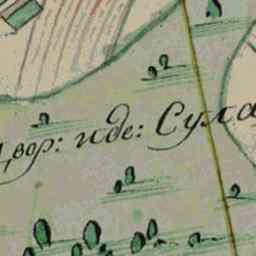 двор: иде: Сула